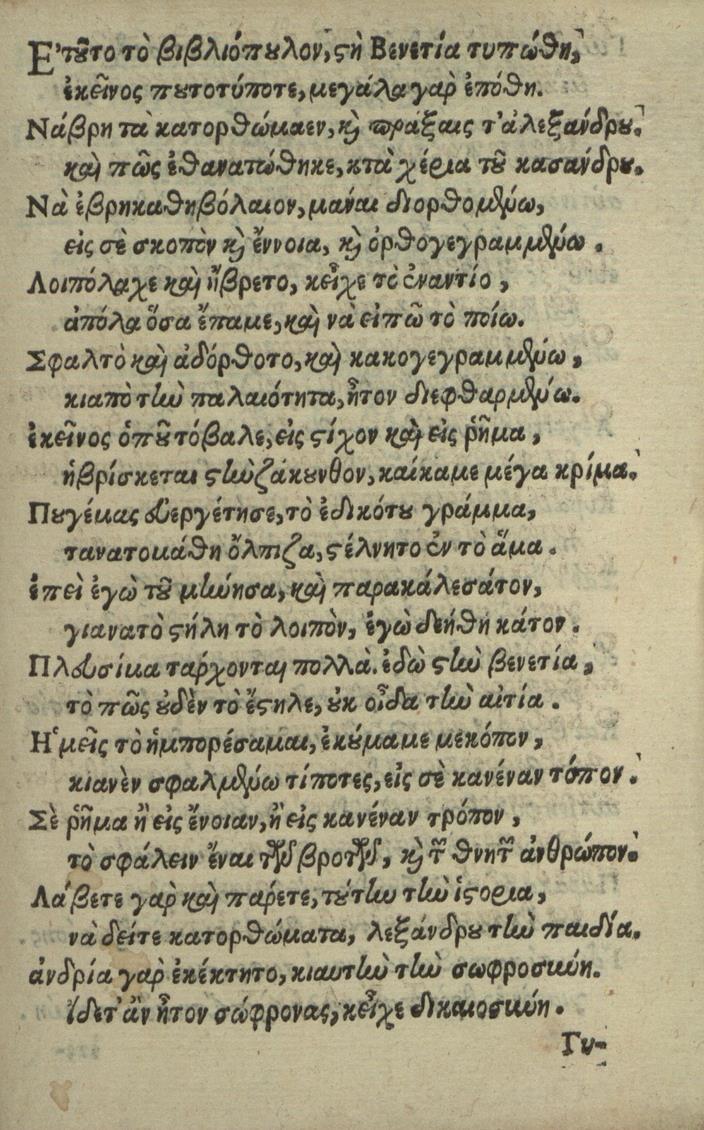 Ε'τοῦτο τὸ βιβλιόπουλον, στὴ Βενετία τυπώθη,
ἐκεῖνος πουτοτύποτε, μεγάλα γαρ ἐπόθη.
Νάβρη τὰ κατορθώμαεν, κὶ πράξαις τ'ἀλεξάνδρου.
καὶ πῶς ἐθανατώθηκε, κτὰ χέρια τοῦ κασάνδρου.
Νὰ ἐβρηκαθηβόλαιον, μαναι διορθομένω,
εἰς σὲ σκοπὸν κὶ ἔννοια, κὶ ὀρθογεγραμμένω.
Λοιπόλαχε καὶ ἥβρετο, κεἶχε τὸ ἐναντίο,
ἀπόλα ὅσα ἔπαμε, καὶ νὰ εἰπῶ τὸ ποίω.
Σφαλτὸ καὶ ἀδόρθοτο, καὶ κακογεγραμμένω,
κιαπὸ τὴν παλαιότητα, ἦτον διεφθαρμένω.
ἐκεῖνος ὁποῦτόβαλε, εἰς στίχον καὶ εἰς ῥῆμα,
ἡβρίσκεται στὴν ζάκυνθον, καίκαμε μέγα κρίμα.
Πουγέμας εὐεργέτησε, τὸ ἐδικότου γράμμα,
τανατομάθη ὄλπιζα, στέλνητο ἐν τὸ ἅμα.
ἐπεὶ ἐγὼ τοῦ μήνησα, καὶ παρακάλεσάτον,
γιανατὸ στήλη τὸ λοιπὸν, ἐγὼ δεήθηκάτον.
Πλευσίμα ταρχονται πολλὰ. ἐδὼ στὴν βενετία,
τὸ πῶς οὐδὲν τὸ ἔστηλε, οὐκ οἶδα τὴν αἰτία.
Η'μεῖς τὸ ἡμπορέσαμαι, ἐκούμαμε μεκόπον,
κιανὲν σφαλμένω τίποτες, εἰς σὲ κανέναν τόπον.
Σὲ ῥῆμα ἢ εἰς ἔνοιαν, ἢ εἰς κανέναν τρόπον,
τὸ σφάλειν ἔναι τῶν βροτῶν, κὶ τῶν θνητῶν ἀνθρώπον.
Λάβετε γαρ καὶ πάρετε, τούτην τὴν ἱστορια,
νὰ δεῖτε κατορθώματα, λεξάνδρου τὴν παιδία.
ἀνδρία γαρ ἐκέκτητο, κιαυτὴν τὴν σωφροσήνη.
ἴδετ'ἂν ἦτον σώφρονας, κεἶχε δικαιοσήνη.
Γυ-